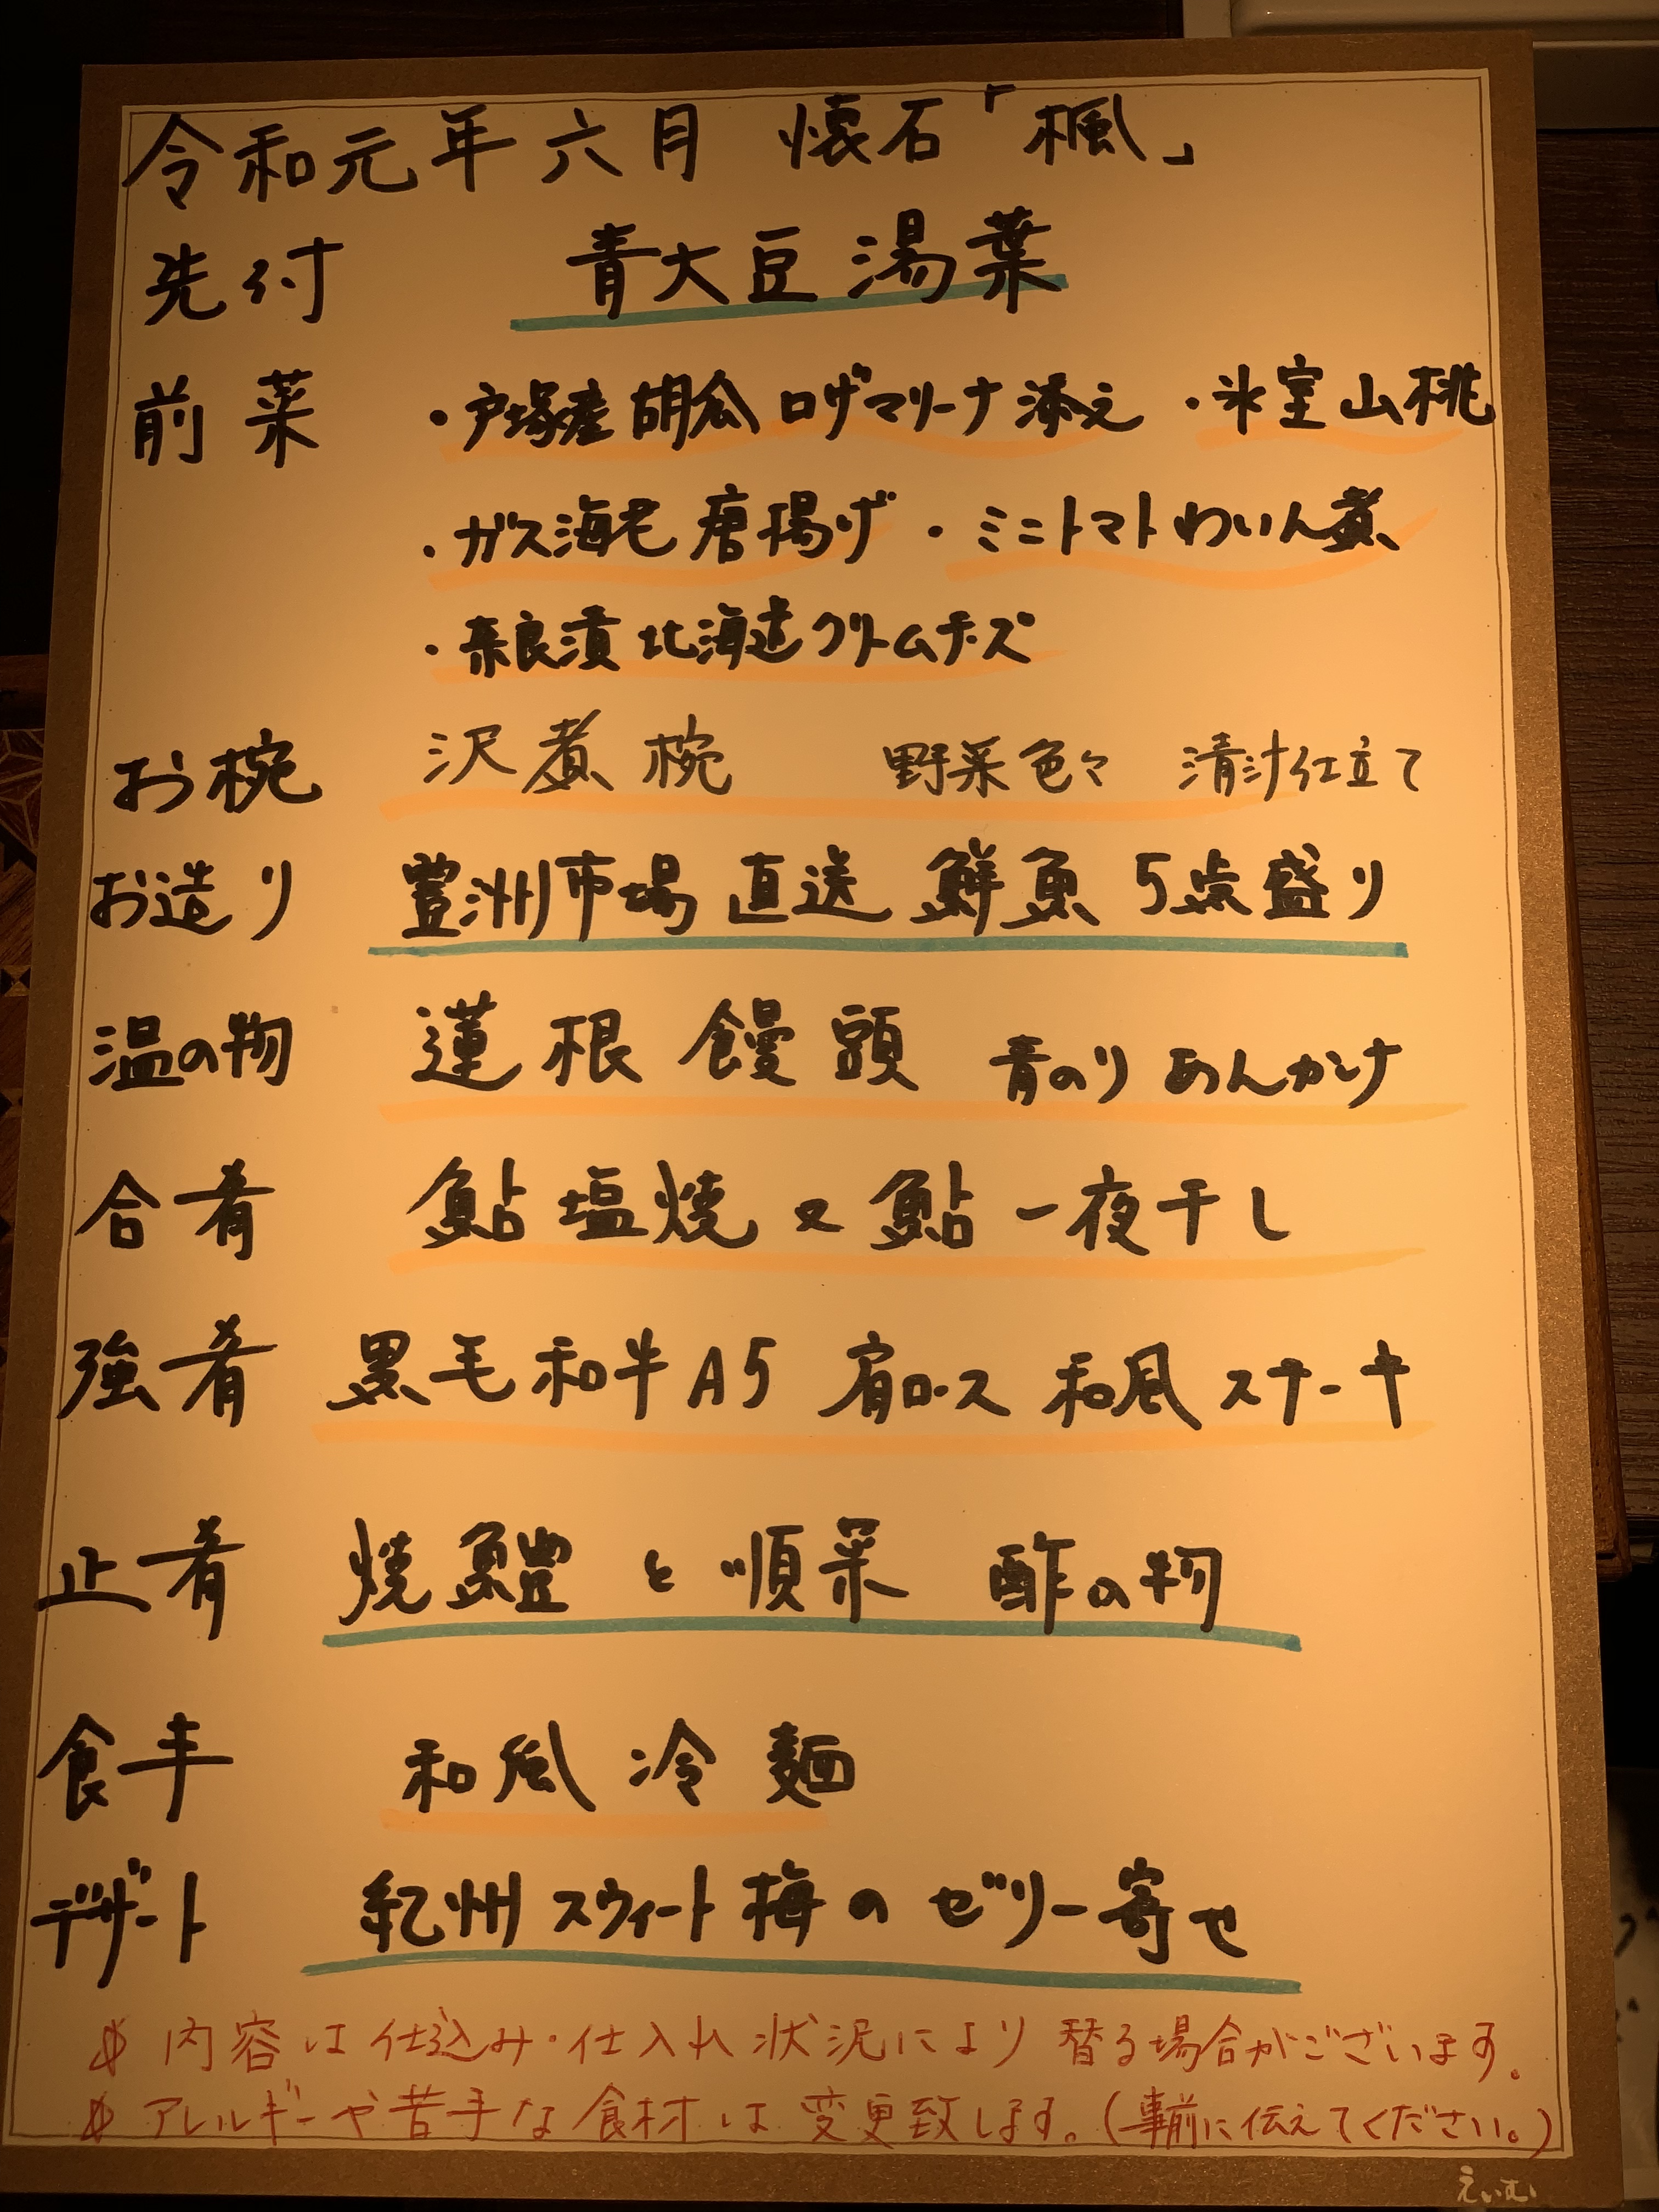 令和元年六月 懐石「楓」
先付 青大豆湯葉
前菜 ・戸塚産胡瓜ロザマリーナ添え ・氷室山桃
・ガス海老唐揚げ ・ミニトマトわいん煮
・奈良漬北海道クリームチーズ
お椀 沢煮椀 野菜色々 清汁仕立て
お造り 豊洲市場直送鮮魚5点盛り
温の物 蓮根饅頭 青のりあんかけ
合肴 鮎塩焼又鮎一夜干し
強肴 黒毛和牛A5 肩ロース 和風ステーキ
止肴 焼鱧と順菜 酢の物
食事 和風冷麺
デザート 紀州スウィート梅のゼリー寄せ
※内容は仕込み・仕入れ状況により替る場合がございます。
※アレルギーや苦手な食材は変更致します。(事前に伝えてください。)
えいむ